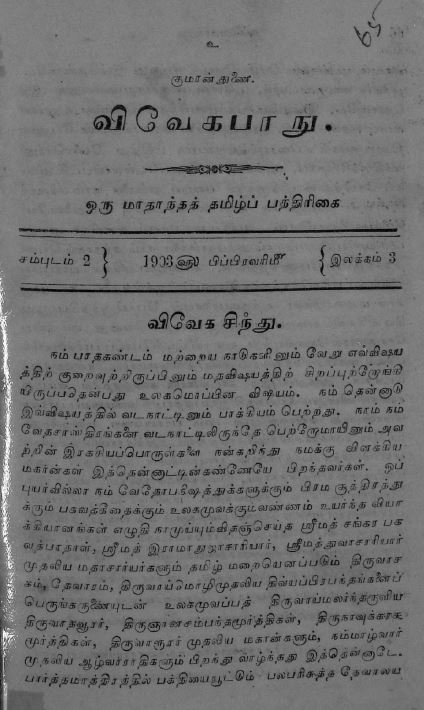 உ
65
குமரன் துணை.
விவேகபாநு.
ஒரு மாதாந்தத் தமிழ்ப் பந்திரிகை
சம்புடம் 2 } 1903௵ பிப்பிரவரி௴ { இலக்கம் 3
விவேக சிந்து.
நம் பரதகண்டம் மற்றைய நாடுகளினும் வேறு எவ்விஷய
த்திற் குறைவுற்றிருப்பினும் மதவிஷயத்திற் சிறப்புற்றோங்கி
யிருப்பதென்பது உலகமொப்பின விஷயம். நம் தென்னாடு
இவ்விஷயத்தில் வடநாட்டினும் பாக்கியம் பெற்றது. நாம் நம்
வேதசாஸ்திரங்களை வடநாட்டிலிருந்தே பெற்றோமாயினும் அவ
ற்றின் இரகசியப்பொருள்களை நன்கறிந்து நமக்கு விளக்கிய
மகான்கள் இத்தென்னாட்டின்கண்ணேயே பிறந்தவர்கள். ஒப்
புயர்வில்லா நம் வேதோபநிஷத்துக்களுக்கும் பிரம சூத்திரத்து
க்கும் பகவத்கீதைக்கும் உலகமுவக்குமவண்ணம் உயர்ந்த வியா
க்கியானங்கள் எழுதி நாமுய்யும்விதஞ்செய்த ஸ்ரீமத் சங்கர பக
வத்பாதாள், ஸ்ரீமத் இராமாநுஜாசாரியார், ஸ்ரீமத்துவாசாரியார்
முதலிய மதாசார்யர்களும் தமிழ் மறையெனப்படும் திருவாச
கம், தேவாரம், திருவாய்மொழிமுதலிய திவ்யப்பிரபந்தங்களைப்
பெருங்கருணையுடன் உலகமுவப்பத் திருவாய்மலர்ந்தருளிய
திருவாதவூரர், திருஞானசம்பந்தமூர்த்திகள், திருநாவுக்கரசு
மூர்த்திகள், திருவாரூரர் முதலிய மகான்களும், நம்மாழ்வார்
முதலிய ஆழ்வாராதிகளும் பிறந்து வாழ்ந்தது இத்தென்னாடே.
பார்த்தமாத்திரத்தில் பக்தியையூட்டும் பலபரிசுத்த தேவாலய